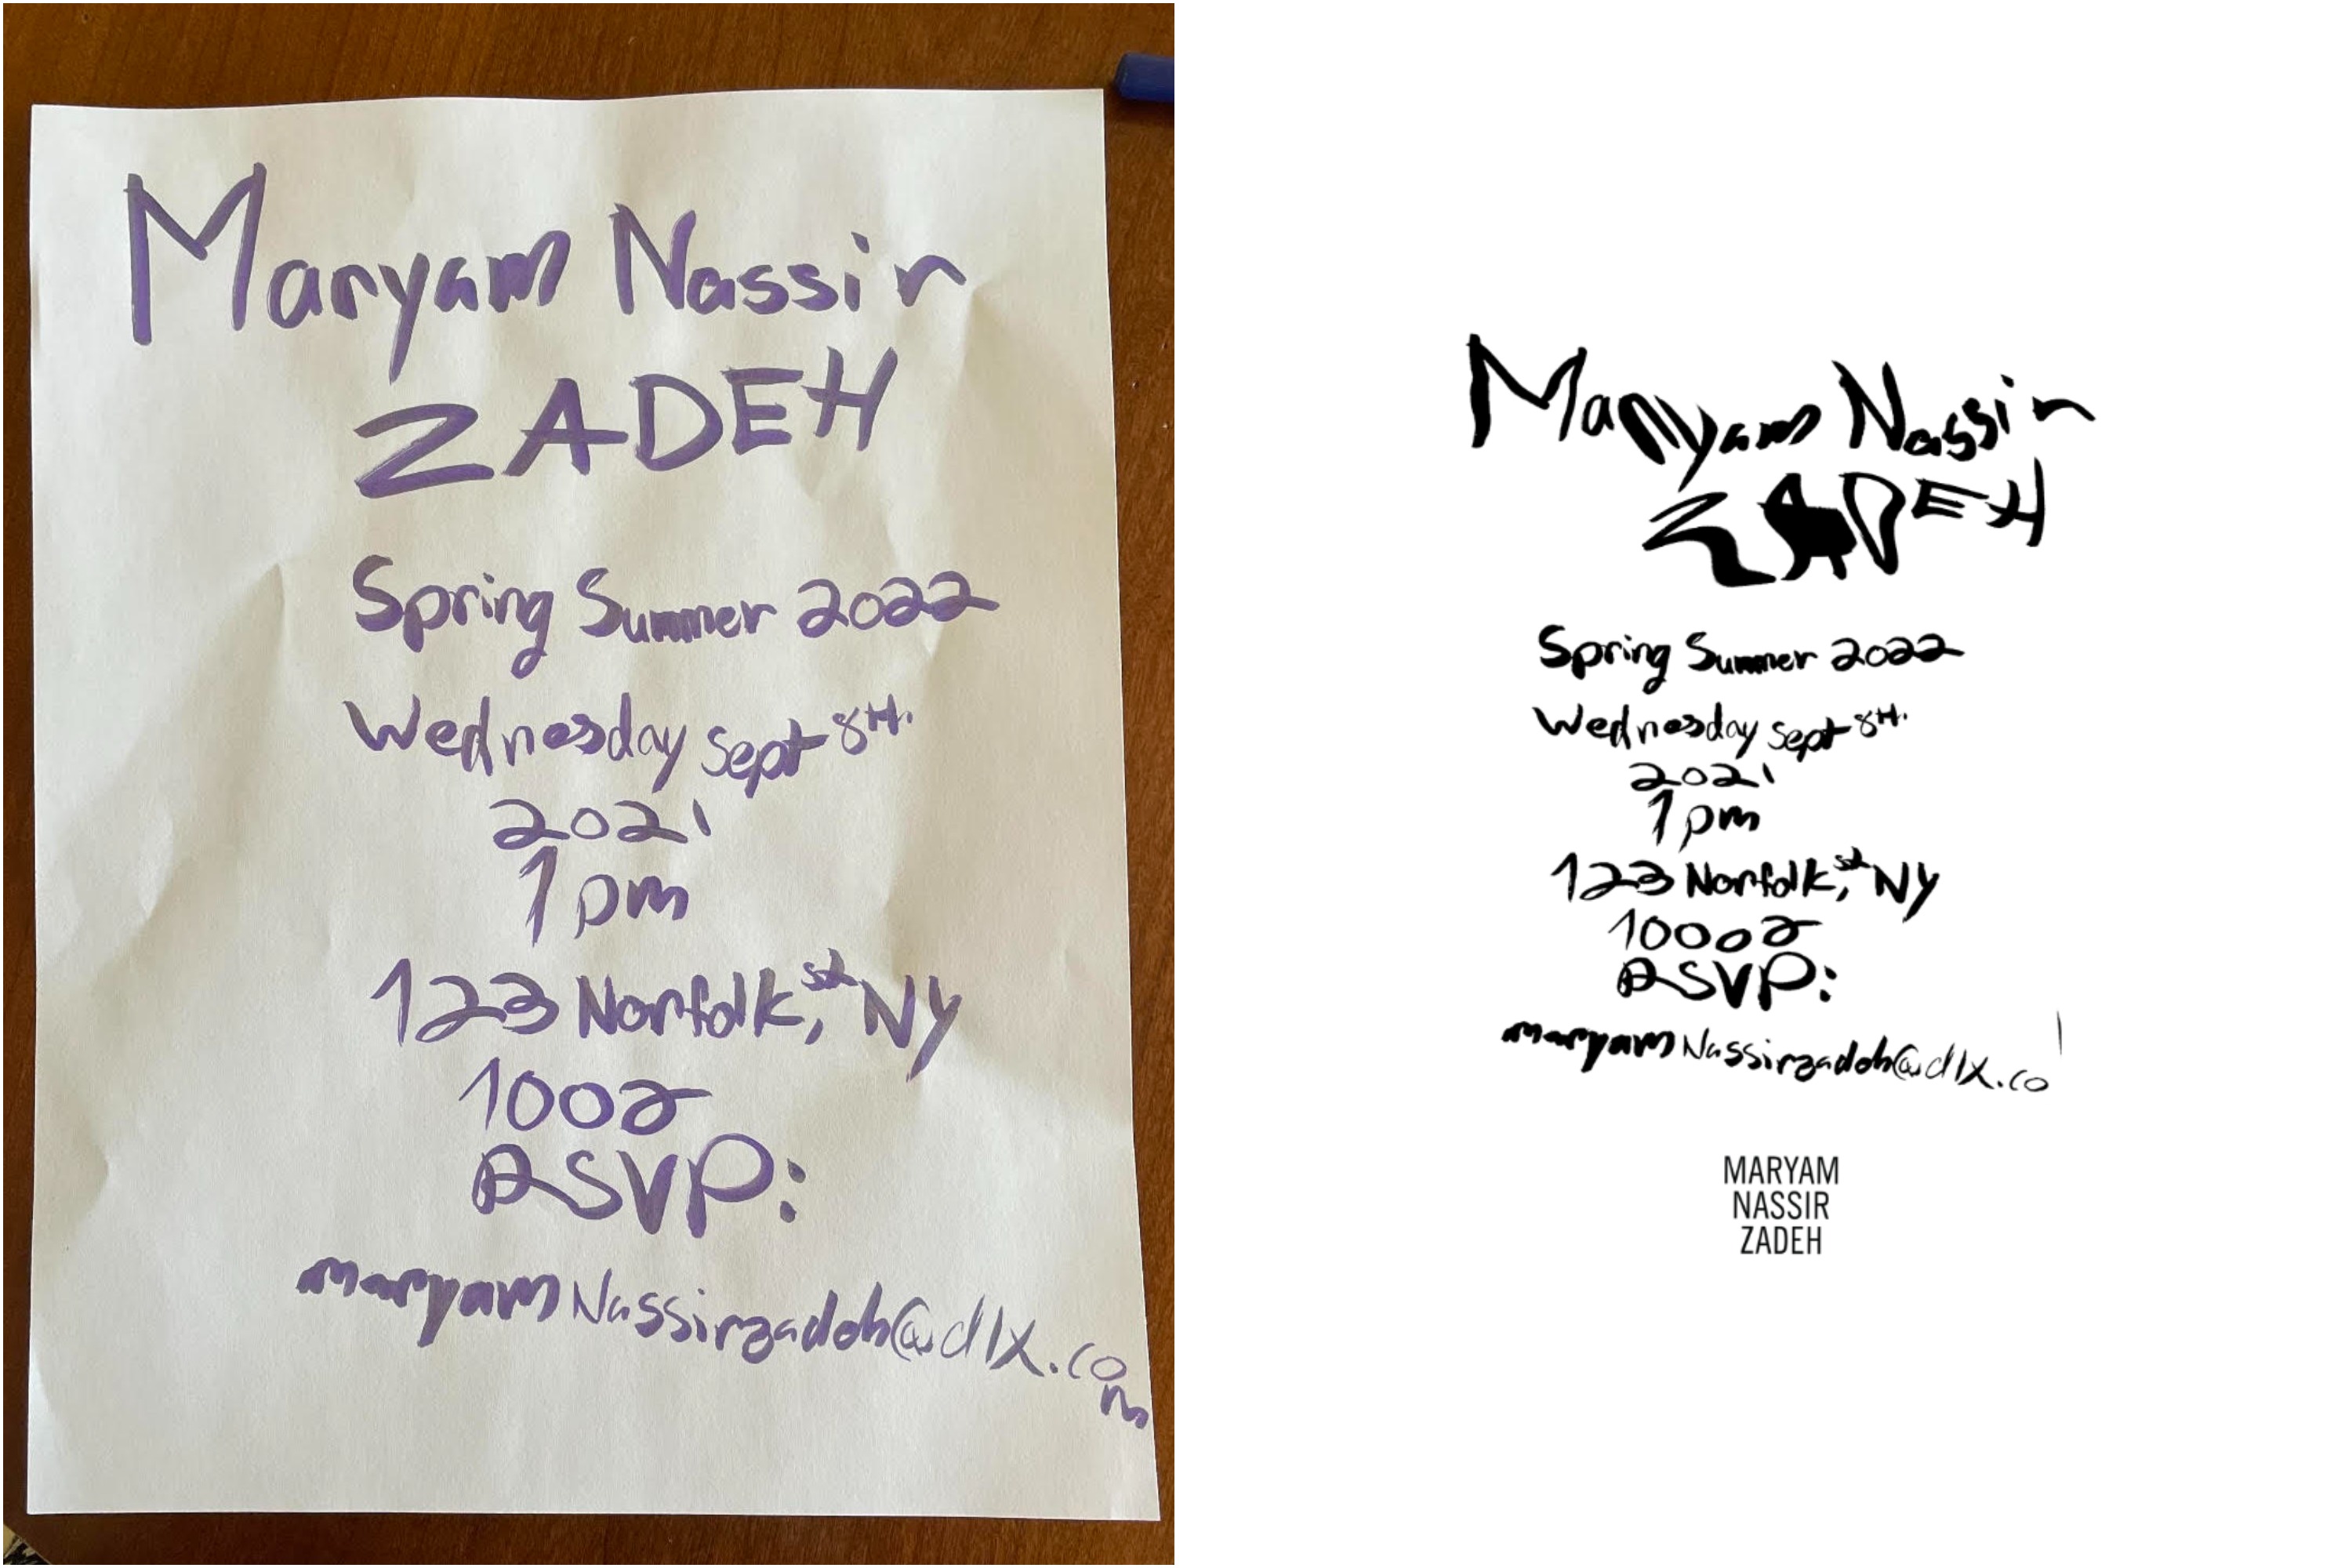 Maryam Nassir
ZADEH
Spring Summer 2022
Wednesday Sept 8TH.
2021
1 pm
123 Norfolk, st NY
1002
RSVP:
maryam Nassirzadeh@dlx.co
m
Maryam Nassir
ZADEH
Spring Summer 2022
Wednesday Sept 8TH.
2021
1 pm
123 Norfolk, st NY
10002
RSVP:
maryam Nassirzadeh@dlx.co
MARYAM
NASSIR
ZADEH